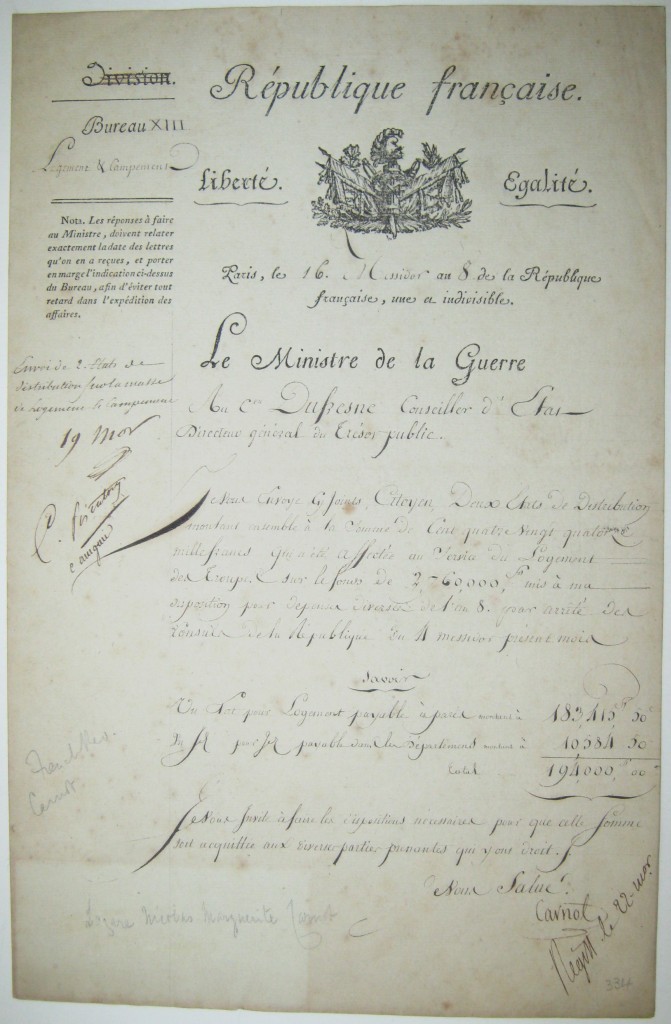 Division.
Bureau XIII
Logement & Campement
Nota. Les réponses à faire
au Ministre, doivent relater
exactement la date des lettres
qu'on en a reçues, et porter
en marge l'indication ci-dessus
du Bureau, afin d'éviter tout
retard dans l'expédition des
affaires.
République française.
Liberté. Egalité.
Paris, le 16. Messidor an 8. de la République
française, une et indivisible.
Le Ministre de la Guerre
Au Cen Dufresne Conseiller d'Etat
Directeur général du Trésor public.
Envoi de 2. Etats de
distribution sur la masse
de Logement & Campement
19 Mor
Je Vous Envoye Cy Joints, Citoyen, Deux Etats de Distribution
montant ensemble à la Somme de Cent quatre Vingt quatorze
mille francs qui a été affectée au Service du Logement
des Troupes sur le fonds de 260,000, fs mis à ma
disposition pour dépenses diverses de l'an 8. par arrêté des
Consuls de la République du 4 messidor présent mois
Savoir
Un Etat pour Logement payable à paris montant à 183,415, fs 50 c
payable dans les Départemens montant à 10,584 50
Total 194,000, fs 00 c
Je Vous Invite à faire les dispositions nécessaires pour que cette Somme
soit acquittée aux diverses parties prenantes qui y ont droit.
Vous Salue.
Carnot
le 22 mor
Carnot
Lazare Nicolas Marguerite Carnot
334